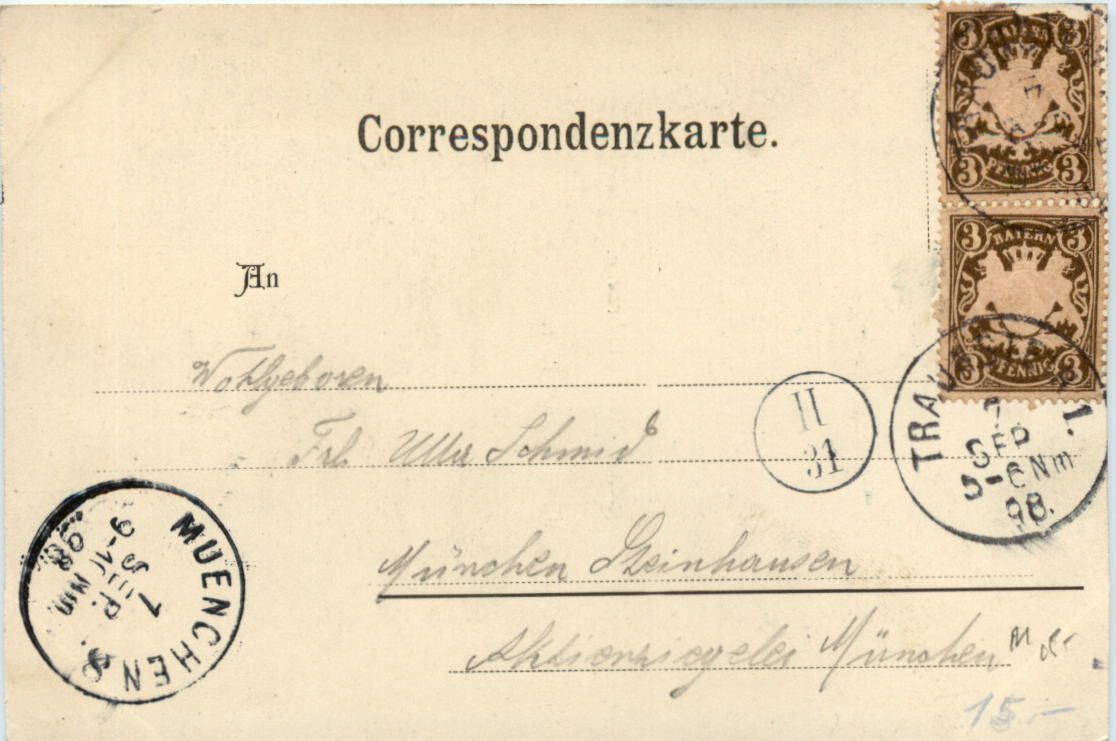 3 BAYERN 3
3 PFENNIG 3
Correspondenzkarte.
3 BAYERN 3
3 PFENNIG 3
An
Wohlgeboren
Frl. Schmid
II
31
TRAUNSTEIN 1.
7
SEP
5-6 Nm
98.
München Steinhausen
MUENCHEN 8.
7
SEP.
9-10 Nm
98
Aktienziegelei München
15.-